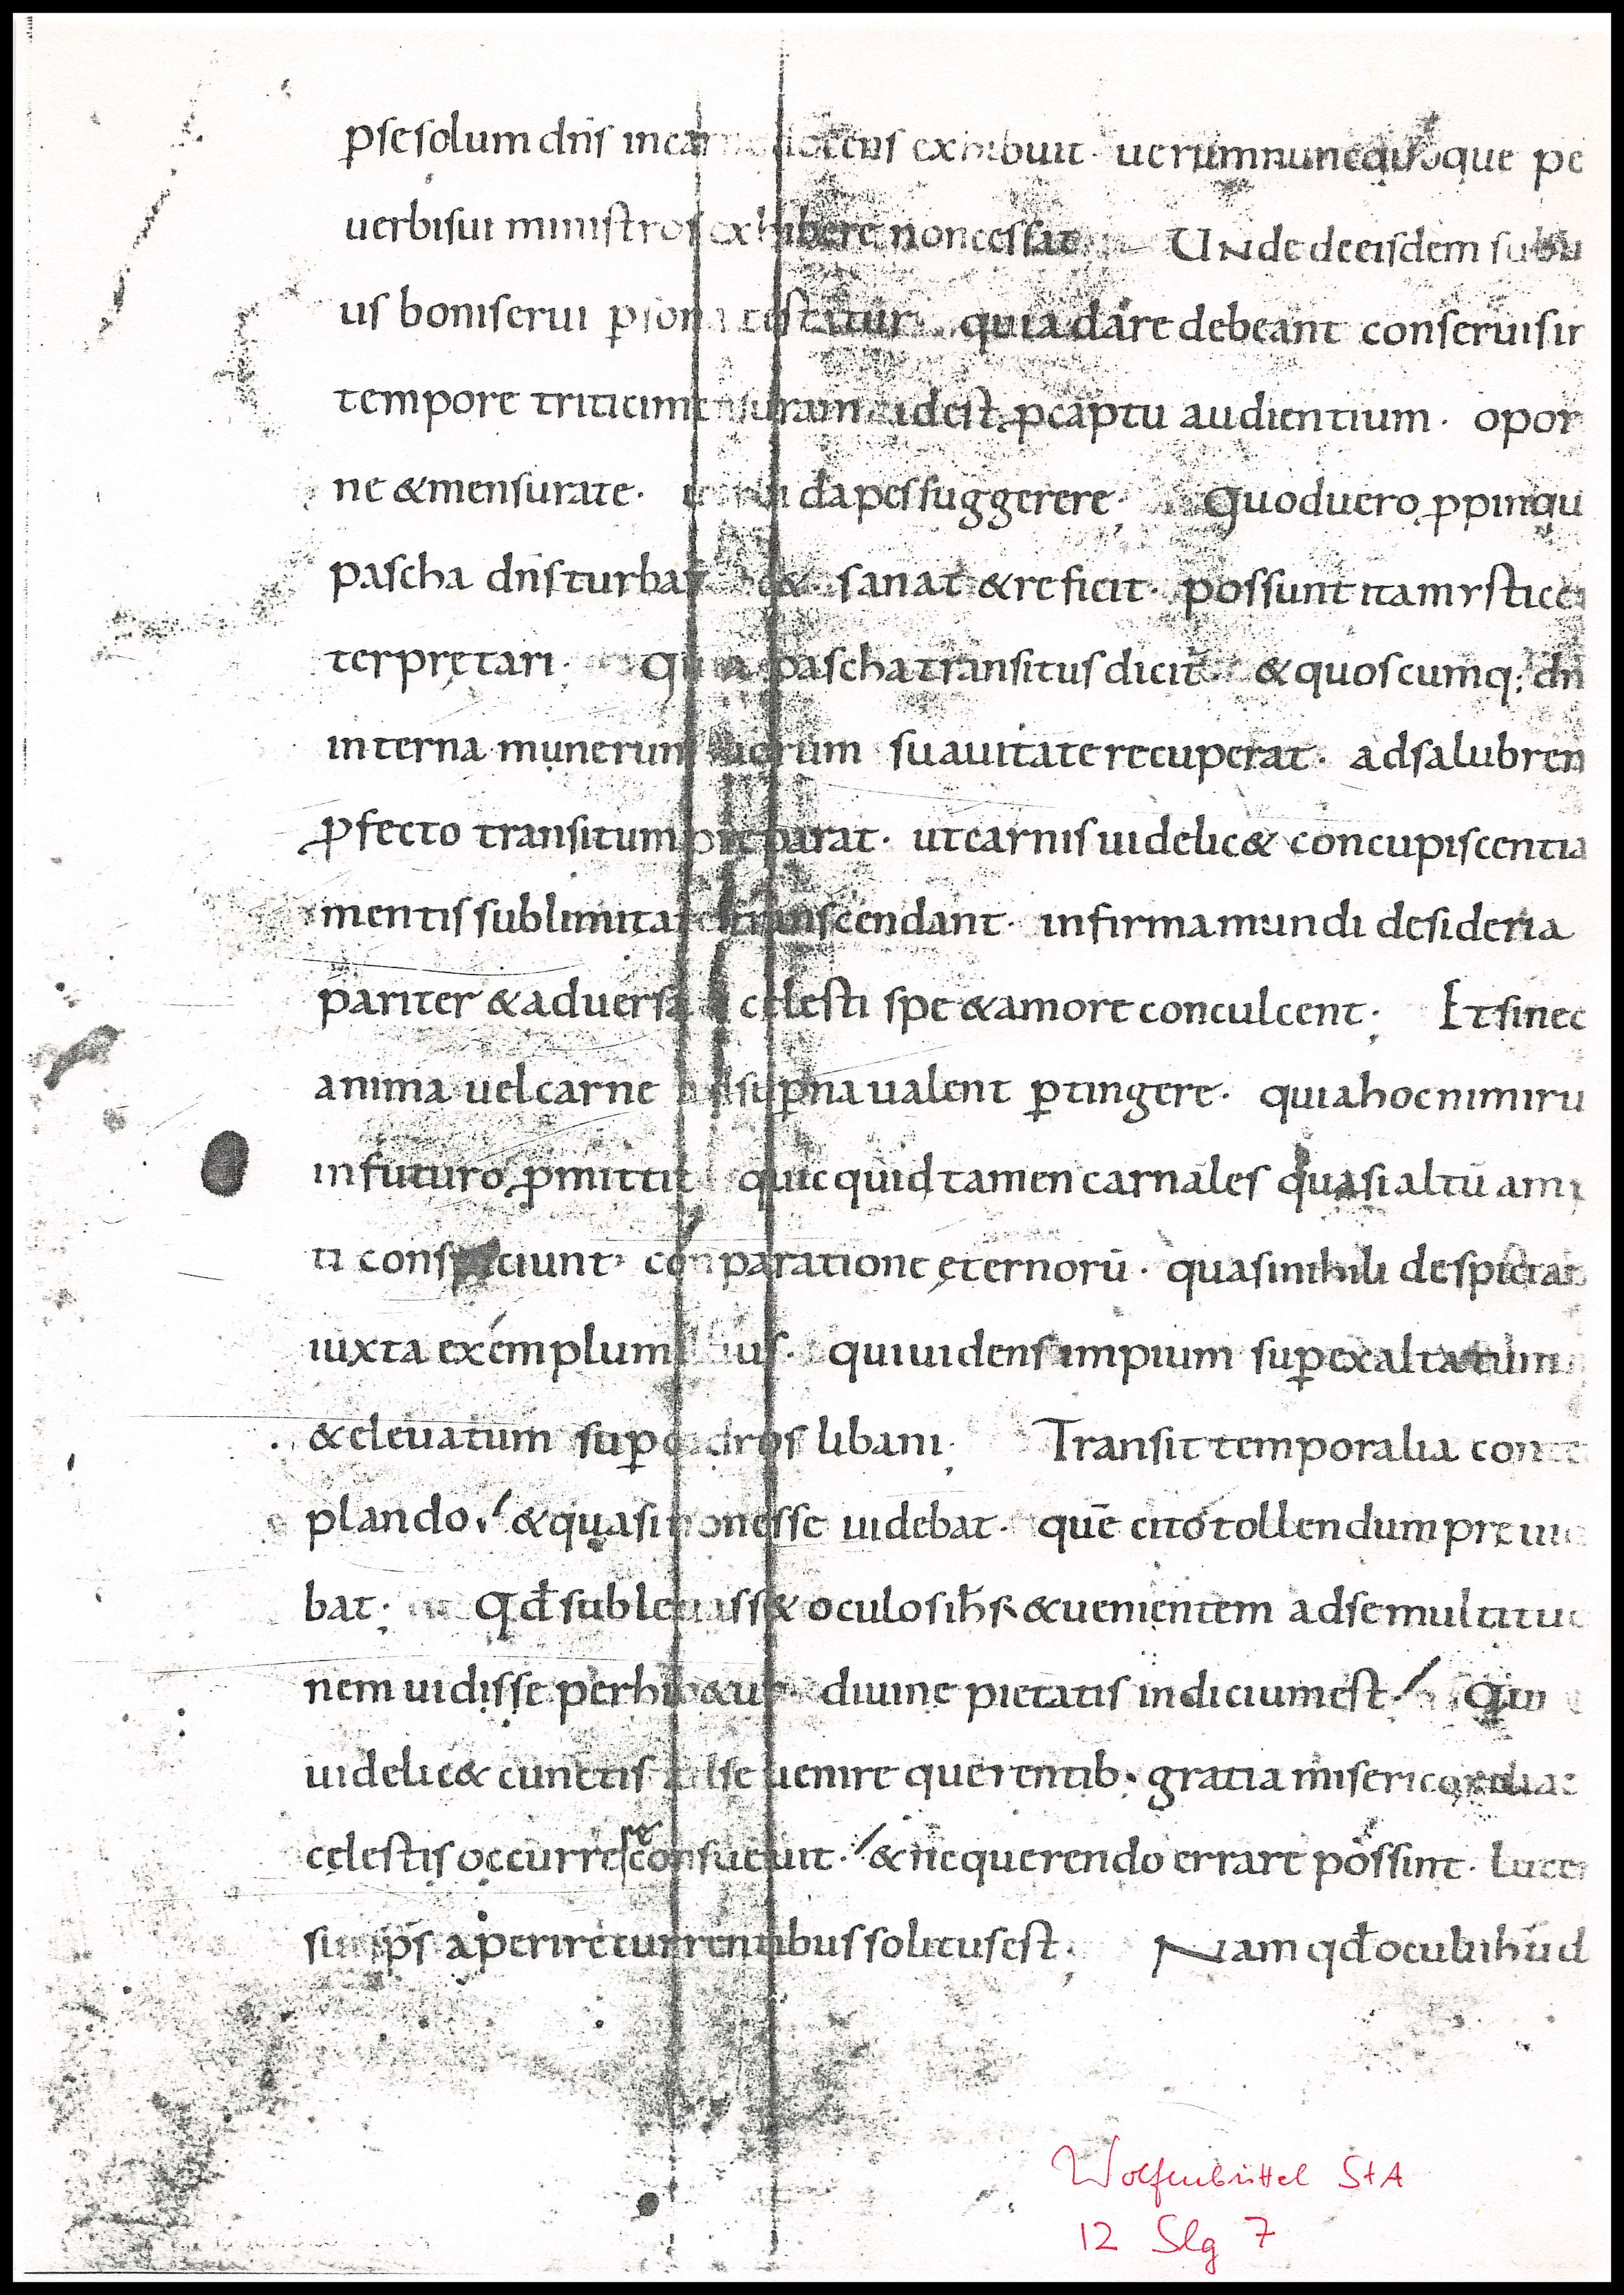 pse solum dn̄s in carne docens exhibuit · uerum nunc quoque pe
uerbi sui ministros exhibere non cessat Unde de eisdem sub
us boni serui persona testitur quia dare debeant conseruis
tempore tritici mensuram · id est p captu audientium · opor
ne & mensurate · uerbi dapes suggerere · Quod uero ppinqu
pascha dn̄s turbas & sanat & reficit · possunt ita mystice
terpretari · Quia pascha transitus dicit̄ & quoscumq; dn̄
interna munerum suorum suauitate recuperat · ad salubrem
pfecto transitum preparat · ut carnis uidelic& concupiscentia
mentis sublimitate transcendant · infirma mundi desideria
pariter & aduersa celesti spe & amore conculcent · Et si nec
anima uel carne ad sup̱na ualent p̱tingere · quia hoc nimiru
in futuro pmittit quicquid tamen carnales quasi altū
ti conspiciunt · conparatione ęternorū · quasi nihili despectat
iuxta exemplum illius · qui uidens impium sup̱exaltatum
& eleuatum sup̱ cedros libani · Transit temporalia conte
plando · & quasi non esse uidebat · quē cito tollendum pre ui
bat · Qd̄ subleuass& oculos ih̄s & uenientem ad se multitud
nem uidisse perhib&ur diuinę pietatis indicium est · Qui
uidelic& cunctis ad se uenire querentib· gratia misericordiae
cęlestis occurre re consueuit · & ne querendo errare possint · Luce
sui sp̄s aperire currentibus solitus est · Nam qd̄ oculi ih̄u d
Wolfenbüttel StA
12 Slg 7